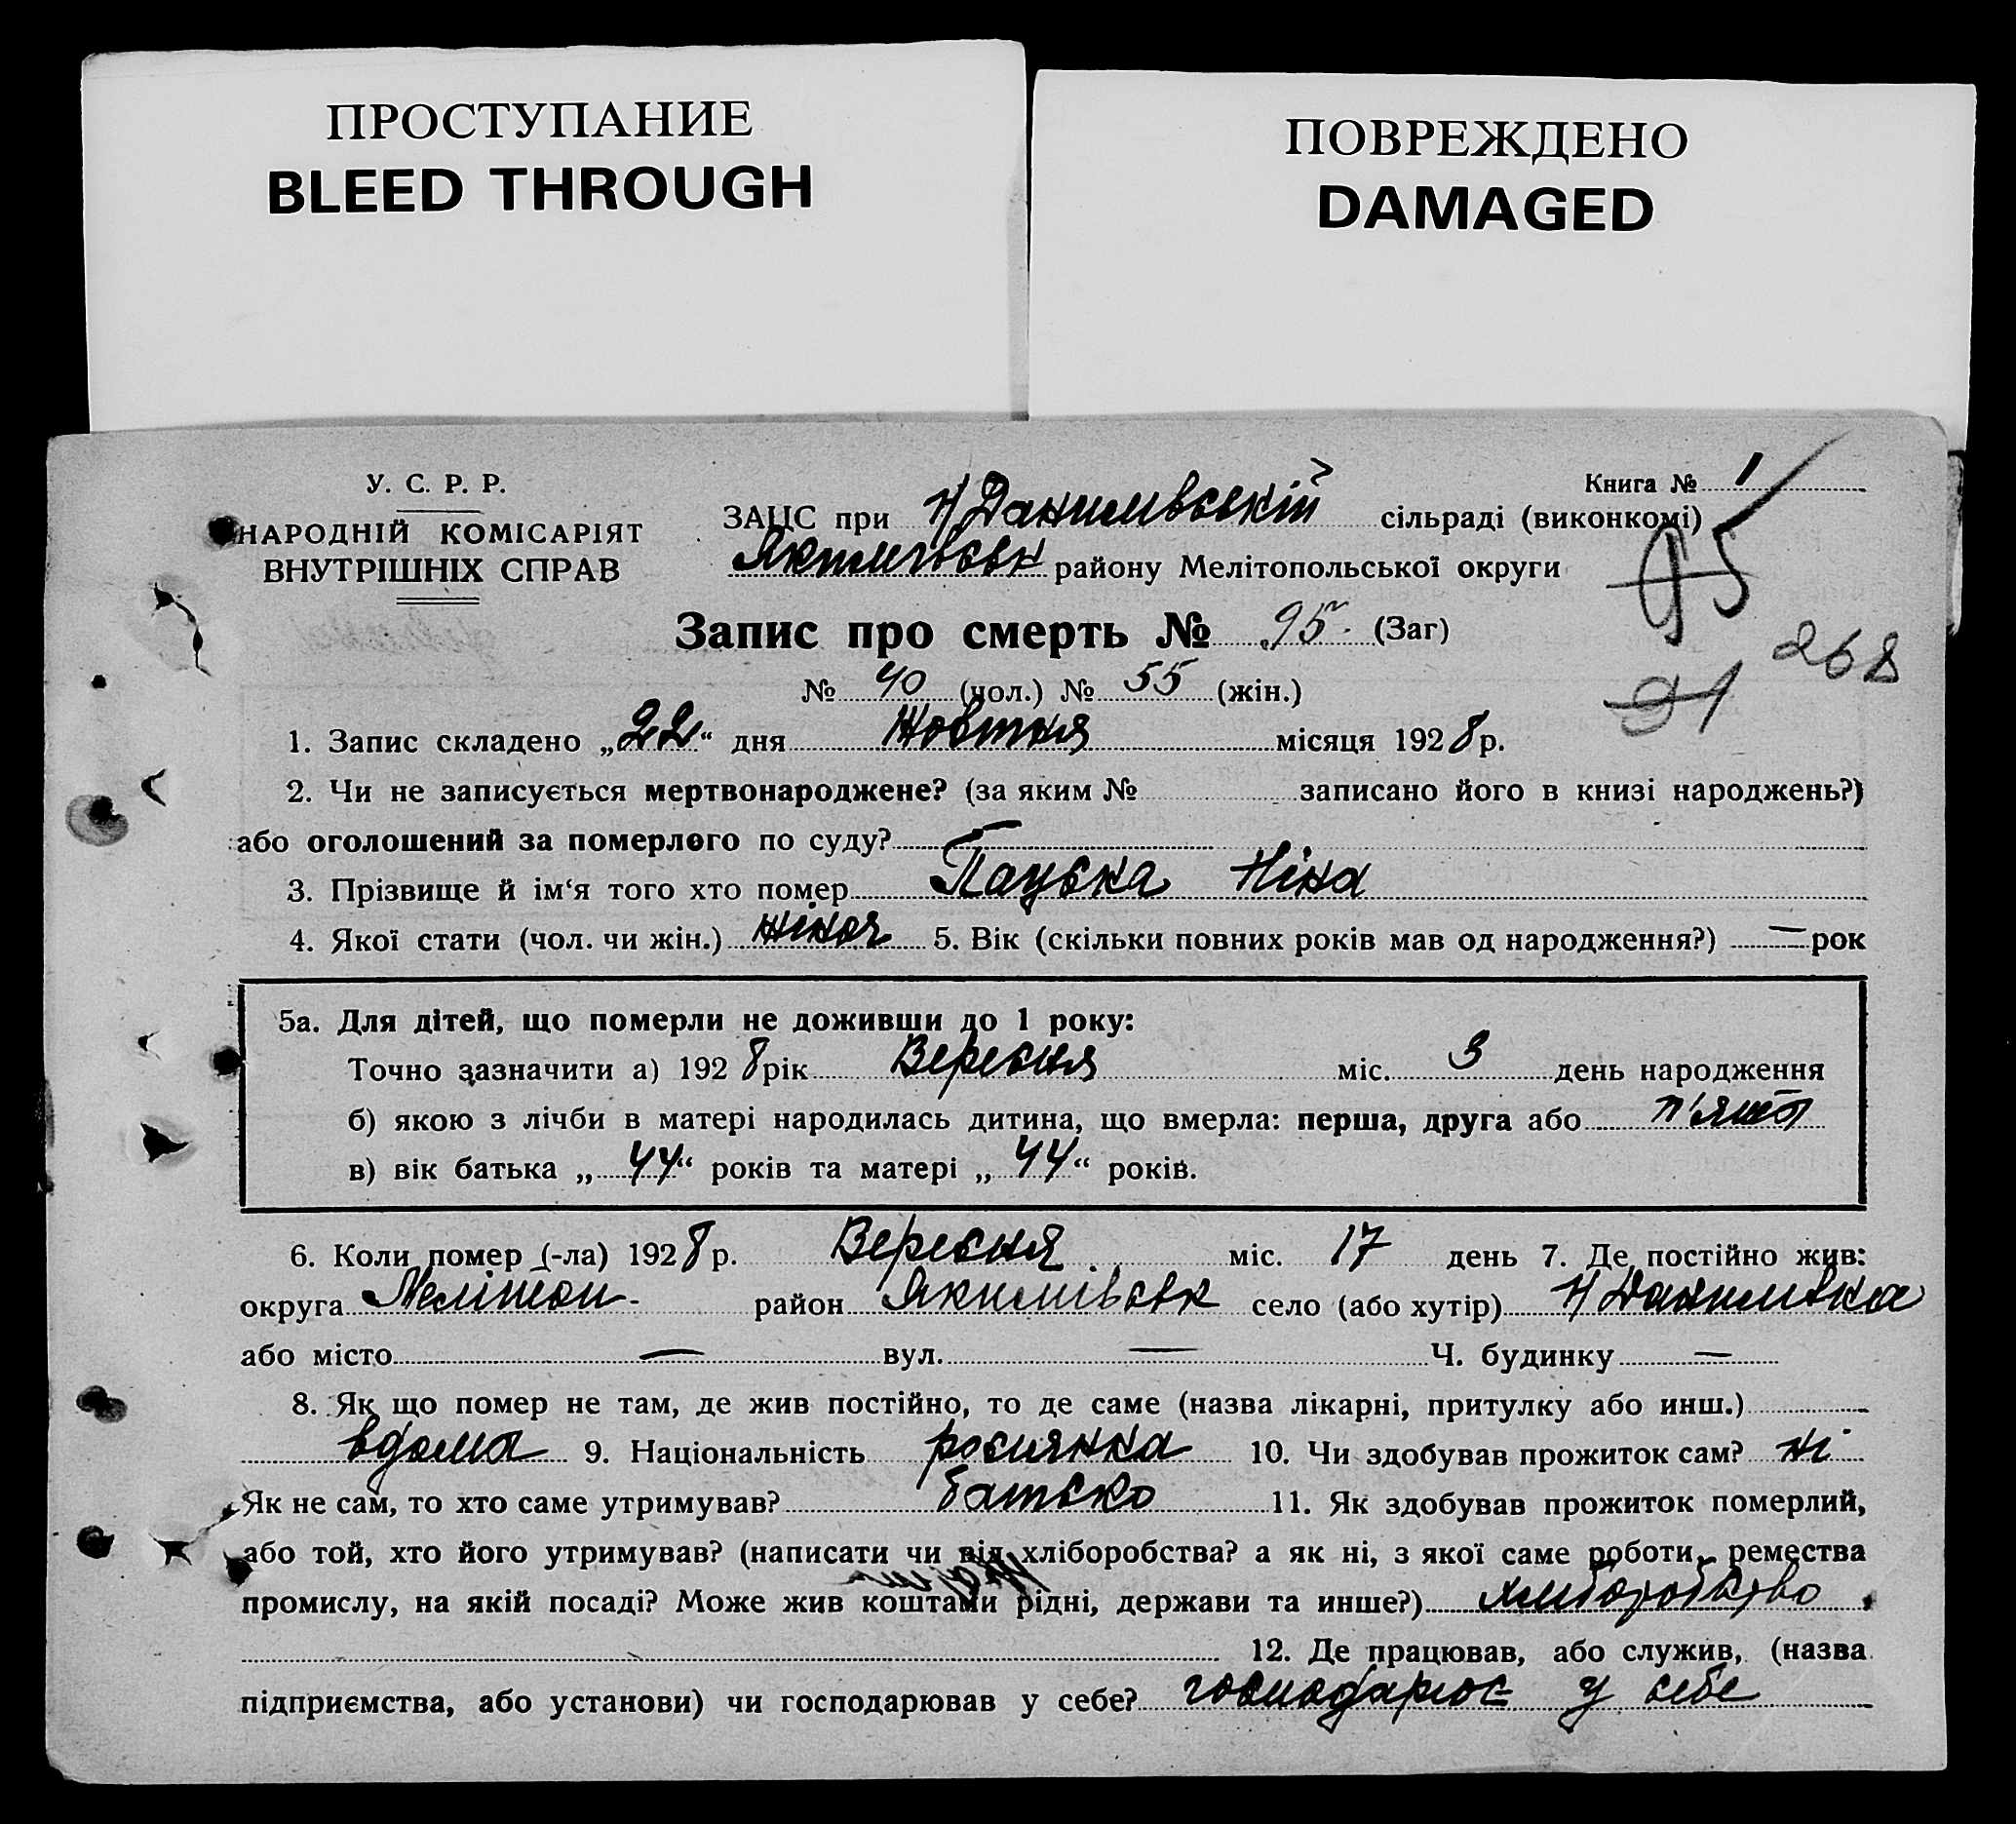 ПРОСТУПАНИЕ
BLEED THROUGH
ПОВРЕЖДЕНО
DAMAGED
У. С. Р. Р.
НАРОДНІЙ КОМІСАРІЯТ
ВНУТРІШНІХ СПРАВ
Книга № 1
ЗАЦС при Н Данилівській сільраді (виконкомі)
Якимівськ району Мелітопольської округи
95
Запис про смерть № 95 (Заг)
268
№ 40 (чол.) № 55 (жін.)
91
1. Запис складено „22“ дня Жовтня місяця 1928 р.
2. Чи не записується мертвонароджене? (за яким № записано його в книзі народжень?)
або оголошений за померлого по суду? —
3. Прізвище й ім‘я того хто помер Ніна
4. Якої стати (чол. чи жін.) жіноч 5. Вік (скільки повних років мав од народження?) — рок
5а. Для дітей, що померли не доживши до 1 року:
Точно зазначити а) 1928 рік Вересня міс. 3 день народження
б) якою з лічби в матері народилась дитина, що вмерла: перша, друга або п'ята
в) вік батька „44“ років та матері „44“ років.
6. Коли помер (-ла) 1928 р. Вересня міс. 17 день 7. Де постійно жив:
округа Мелітоп. район Якимівськ село (або хутір) Н Данилівка
або місто — вул. — Ч. будинку —
8. Як що помер не там, де жив постійно, то де саме (назва лікарні, притулку або инш.)
вдома 9. Національність росиянка 10. Чи здобував прожиток сам? ні
Як не сам, то хто саме утримував? батько 11. Як здобував прожиток померлий,
або той, хто його утримував? (написати чи від хліборобства? а як ні, з якої саме роботи, ремества
промислу, на якій посаді? Може жив коштами рідні, держави та инше?) хліборобство
12. Де працював, або служив, (назва
підприємства, або установи) чи господарював у себе? господарює у себе